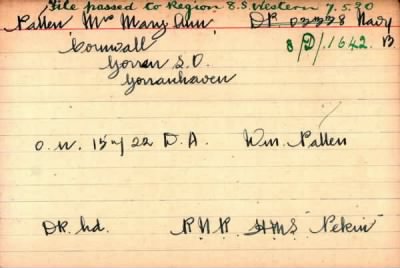 File passed to Region E.S. Western 7.5.30
Patten Mrs Mary Ann DP. 03338 Navy
8/D/.1642. B.
Cornwall
Gorran S.O.
Gorranhaven
O.W. 15/22 D.A. Wm. Patten
DR. hd. R.N.R. H.M.S. "Pekin"